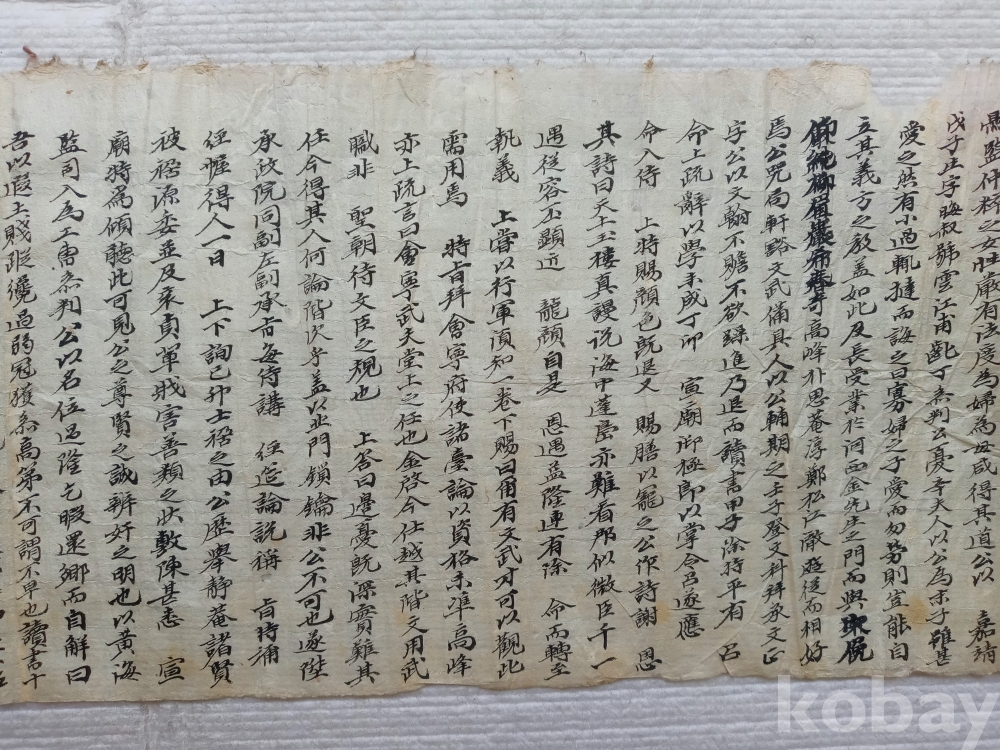 禹監仲釋之女壯肅有法度爲婦爲母咸得其道公以　嘉靖
戊子生字晦叔號雲江甫齔丁參判公憂辛夫人以公爲末子雖甚
愛之然有小過輒撻而誨之曰寡婦之子愛而勿勞則豈能自
立其義方之敎盖如此及長受業於河西金先生之門而與
奇高峰朴思菴淳鄭松江澈遊從而相好
焉公氣局軒豁文武備具人以公輔期之壬子登文科拜承文正
字公以文翰不贍不欲驟進乃退而讀書甲子除持平有　召
命上疏辭以學未成丁卯　宣廟御極郎以掌令召遂應
命入侍　上時賜顏色旣退又　賜膳以寵之公作詩謝　恩
其詩曰天上公樓眞謾說海中蓬島亦難看那似微臣千一
遇從容咫顯近　龍顔自是　恩遇益隆連有除　命而轉至
執義　上嘗以行軍須知一卷下賜曰爾有文武才可以觀此
需用焉　時首拜會寧府使諸臺論以資格未準高峰
亦上疏言曰會寧武夫堂上之任也金啓今任越其階文用武
職非　聖朝待文臣之規也　上答曰邊憂旣深實難其
任今得其人何論階次乎盖以北門鎖鑰非公不可也遂陞
承政院同副左副承旨每侍講　經筵論說稱　旨特浦
經幄得人一日　上下詢己卯士禍之由公歷擧靜菴諸賢
被禍源委並及袞貞輩戕害善類之狀敷陳甚悉　宣
廟時爲傾聽此可見公之尊賢之誠辨奸之明也以黃海
監司入爲工曹參判公以名位過隆乞暇還鄕而自解曰
吾以遐土賤蹤纔過弱冠獲參高第不可謂不早也讀書十
kobay